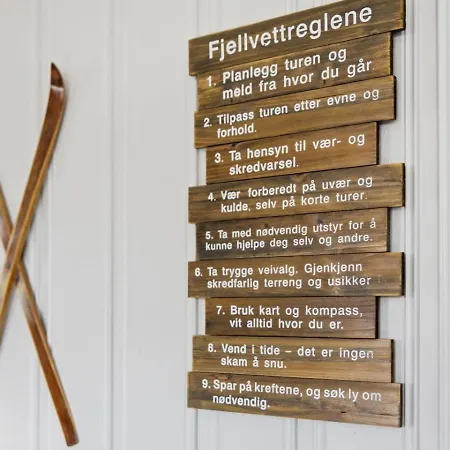 Fjellvettreglene
1. Planlegg turen og
meld fra hvor du går.
2. Tilpass turen etter evne og
forhold.
3. Ta hensyn til vær- og
skredvarsel.
4. Vær forberedt på uvær og
kulde, selv på korte turer.
5. Ta med nødvendig utstyr for å
kunne hjelpe deg selv og andre.
6. Ta trygge veivalg. Gjenkjenn
skredfarlig terreng og usikker
7. Bruk kart og kompass,
vit alltid hvor du er.
8. Vend i tide – det er ingen
skam å snu.
9. Spar på kreftene, og søk ly om
nødvendig.